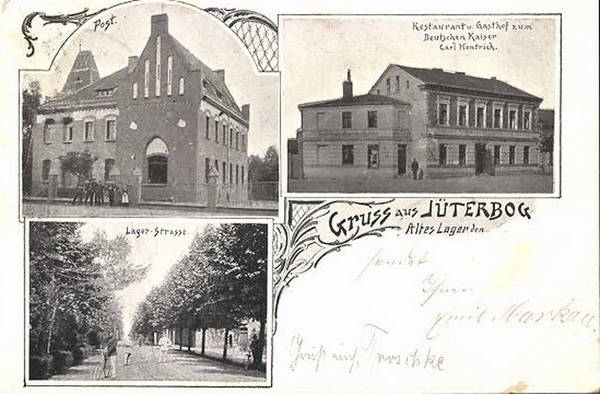 Post.
Restaurant u. Gasthof zum
Deutschen Kaiser
Carl Hentrich.
Gruss aus JÜTERBOG
Altes Lager den
Lager-Strasse.
sendet
Ihnen
Emil Markau.
Gruß auch Troschke